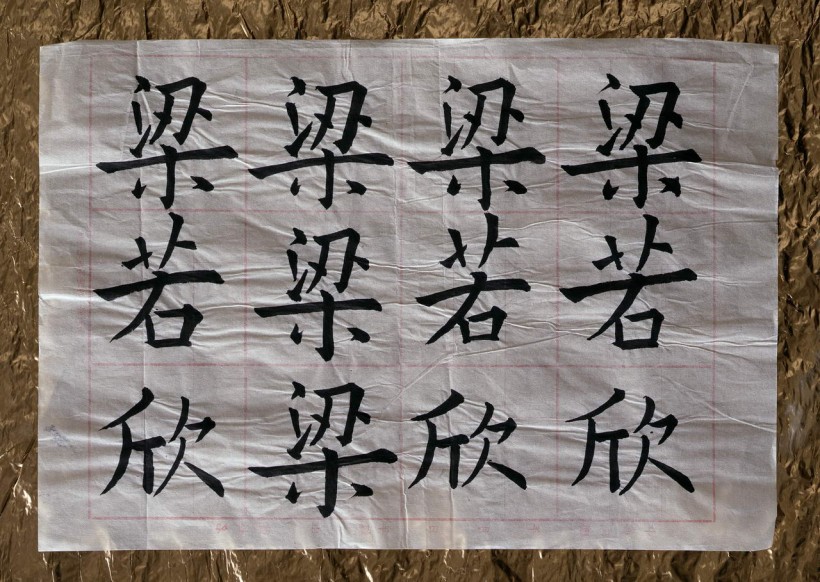 梁若欣
梁若欣
梁梁梁
梁若欣